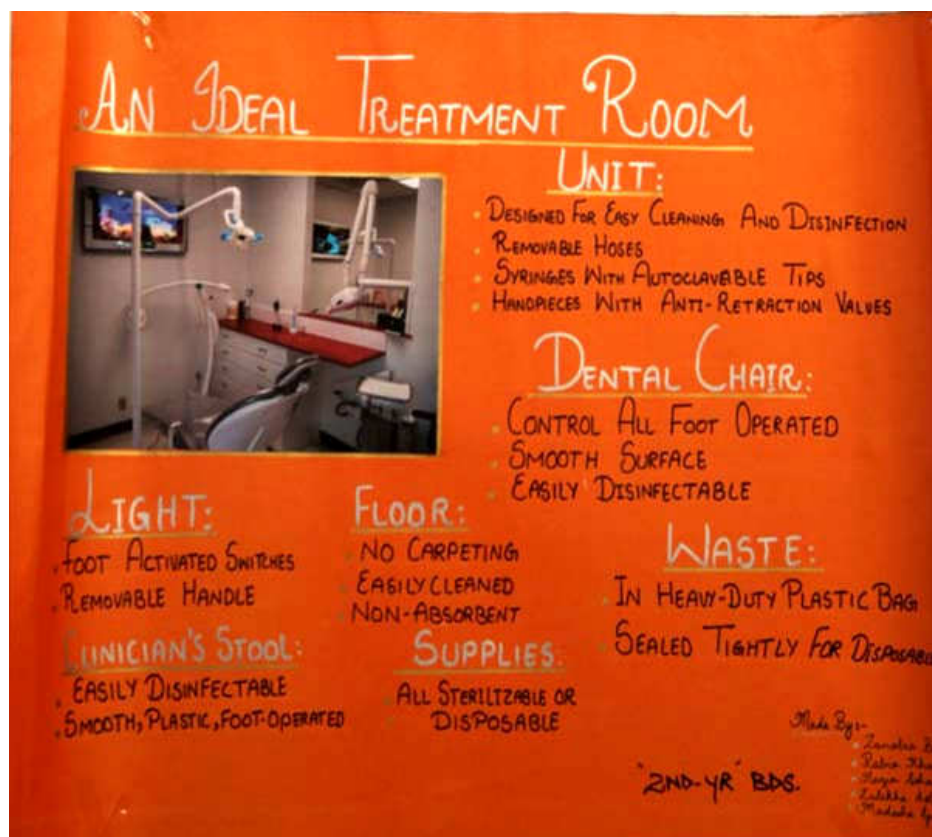 AN IDEAL TREATMENT ROOM
UNIT:
DESIGNED FOR EASY CLEANING AND DISINFECTION
REMOVABLE HOSES
SYRINGES WITH AUTOCLAVABLE TIPS
HANDPIECES WITH ANTI-RETRACTION VALVES
DENTAL CHAIR:
CONTROL ALL FOOT OPERATED
SMOOTH SURFACE
EASILY DISINFECTABLE
LIGHT:
FOOT ACTIVATED SWITCHES
REMOVABLE HANDLE
FLOOR:
NO CARPETING
EASILY CLEANED
NON-ABSORBENT
WASTE:
IN HEAVY-DUTY PLASTIC BAG
SEALED TIGHTLY FOR
CLINICIAN'S STOOL:
EASILY DISINFECTABLE
SMOOTH, PLASTIC, FOOT-OPERATED
SUPPLIES:
ALL STERILTZABLE OR
DISPOSABLE
Made By:-
"2ND-YR" BDS.